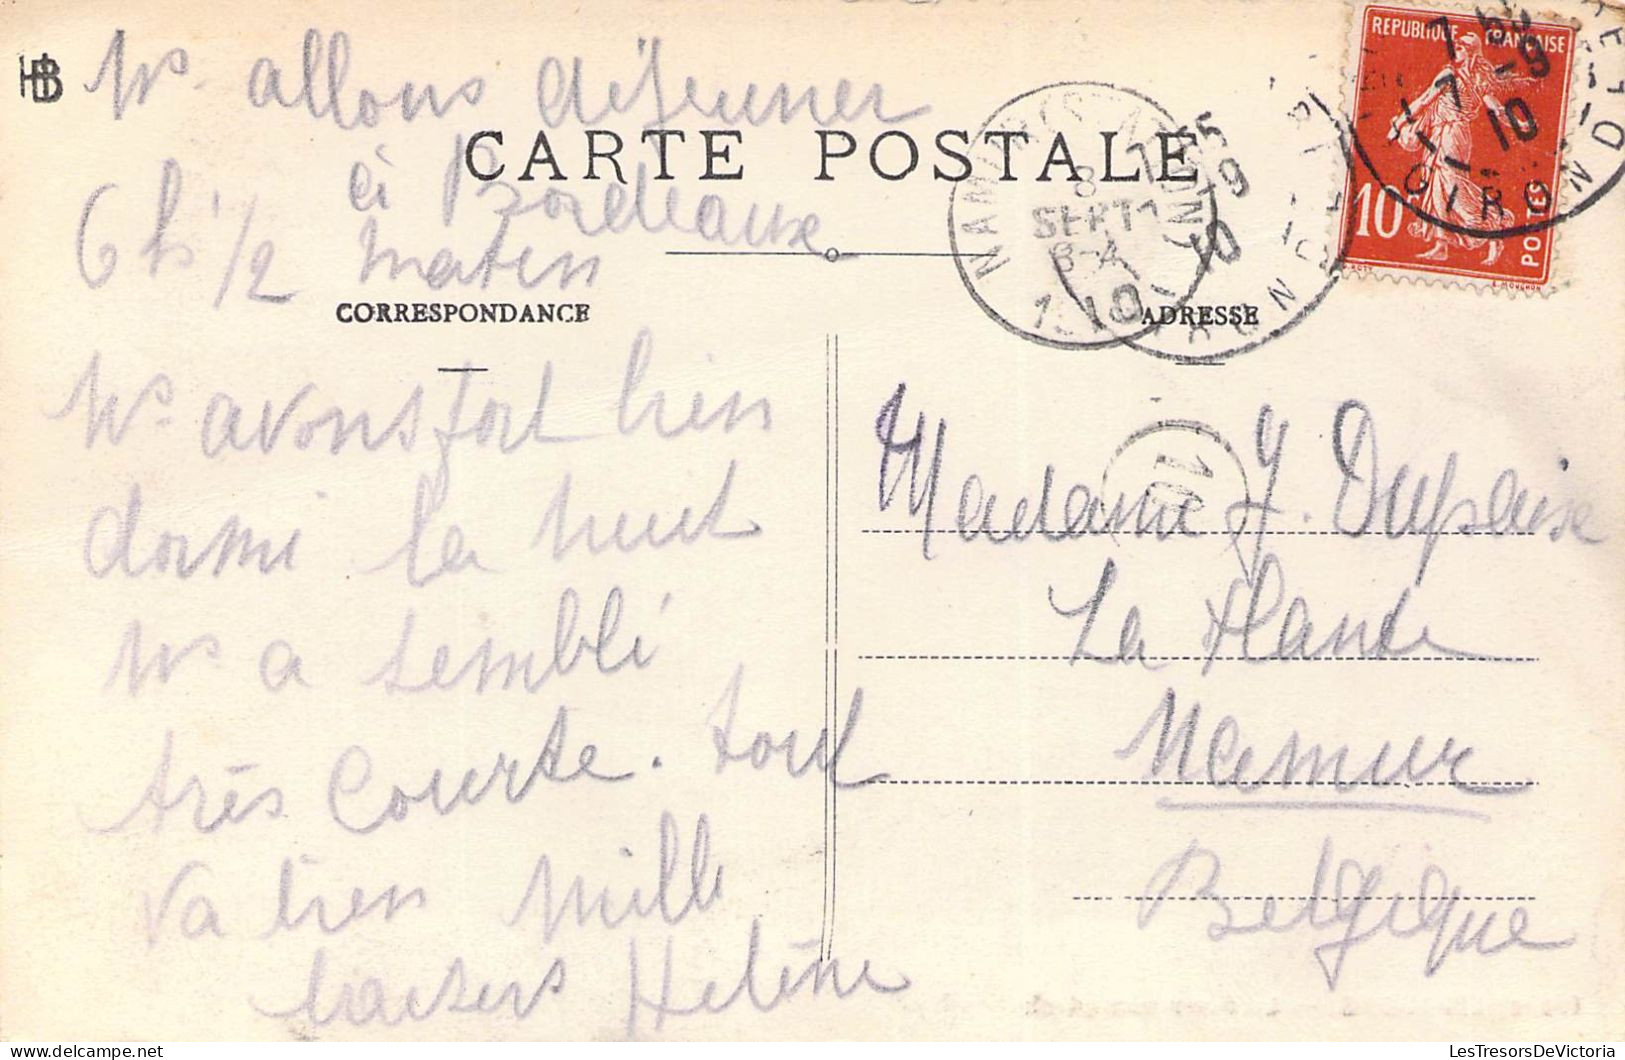 HB
Ns allons déjeuner
CARTE POSTALE
à Bordeaux
6 h 1/2 matin
CORRESPONDANCE
Ns avons fort bien
dormi la nuit
Ns a semblé
très courte. tout
va bien mille
baisers Hélène
REPUBLIQUE FRANÇAISE
10c
POSTES
E. MOUCHON
7-9
10
GIRONDE
NAMUR
8
SEPT
1910
-9
10
GIRONDE
ADRESSE
10
Madame J. Dupaix
La Plante
Namur
Belgique
LesTresorsDeVictoria